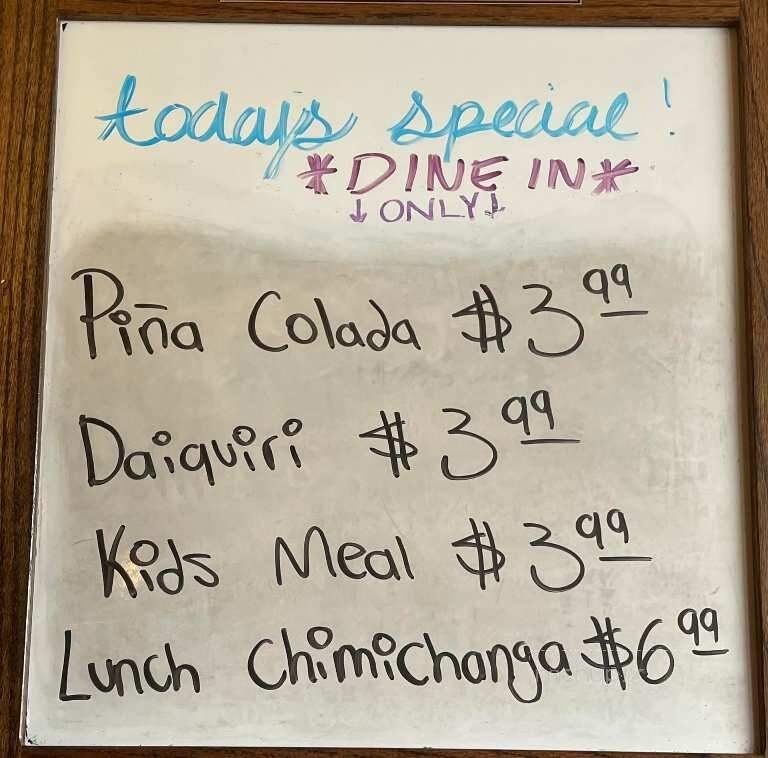 todays special!
*DINE IN*
↓ONLY↓
Piña Colada $3.99
Daiquiri $3.99
Kids Meal $3.99
Lunch Chimichanga $6.99